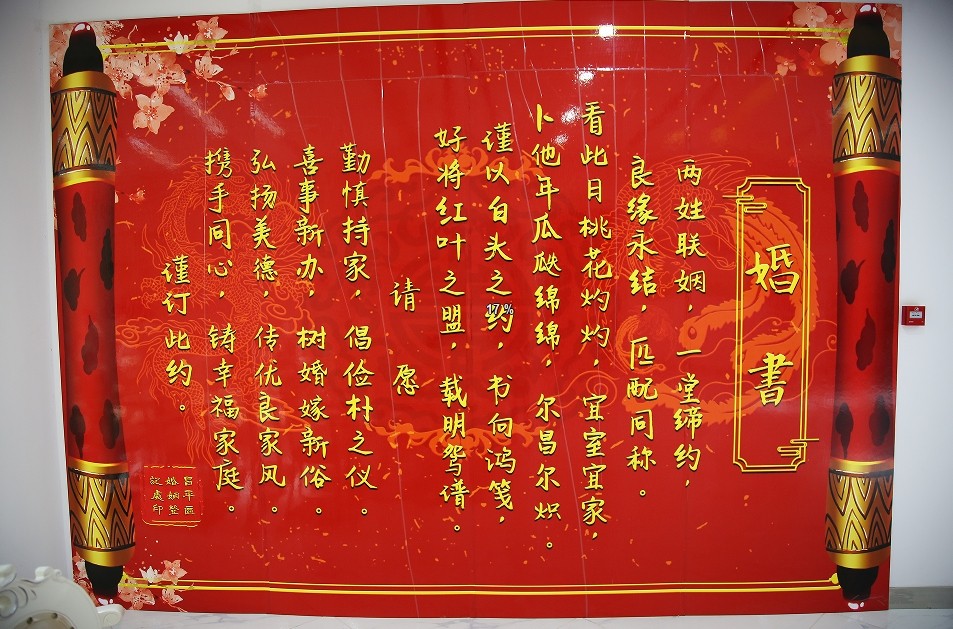 婚書
两姓联姻，一堂缔约，
良缘永结，匹配同称。
看此日桃花灼灼，宜室宜家，
卜他年瓜瓞绵绵，尔昌尔炽。
谨以白头之约，书向鸿笺，
好将红叶之盟，载明鸳谱。
请愿
勤慎持家，倡俭朴之仪。
喜事新办，树婚嫁新俗。
弘扬美德，传优良家风。
携手同心，铸幸福家庭。
谨订此约。
昌平區
婚姻登
記處印
17.1%